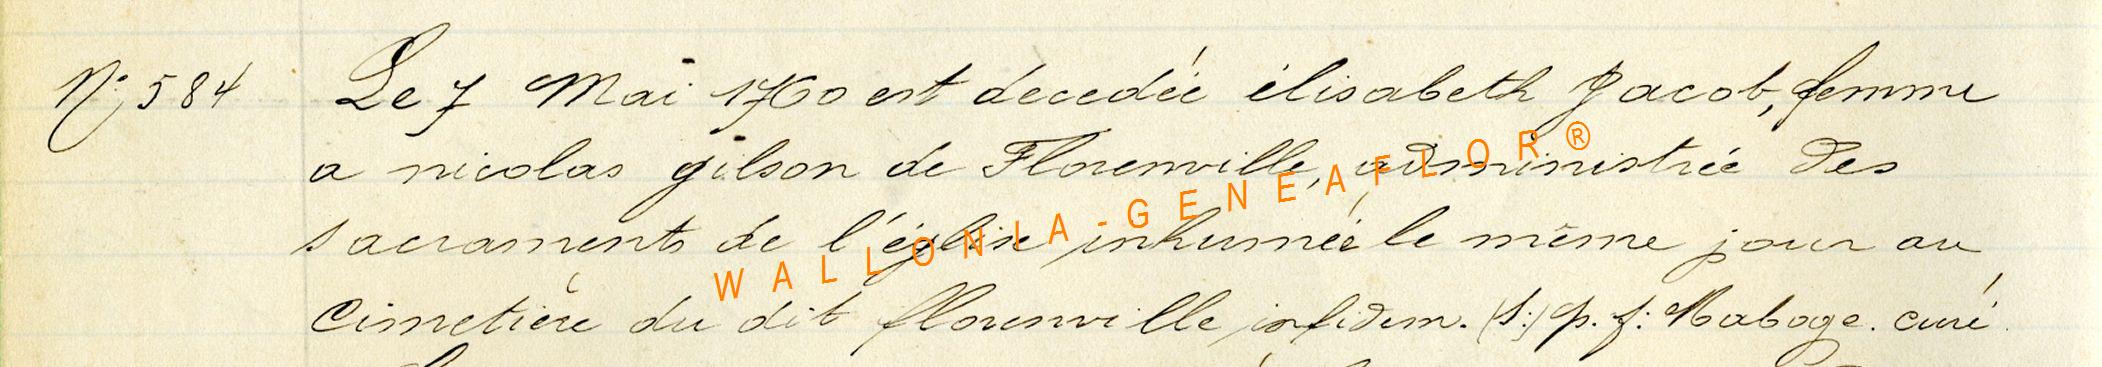 N: 584 Le 7 Mai 1760 est decedée élisabeth Jacob, femme
a nicolas gilson de Florenville, administrée des
sacraments de l'église inhumée le même jour au
Cimetière du dit florenville infidem. (S:) p. f: Maboge. curé.
WALLONIA-GENEAFLOR®